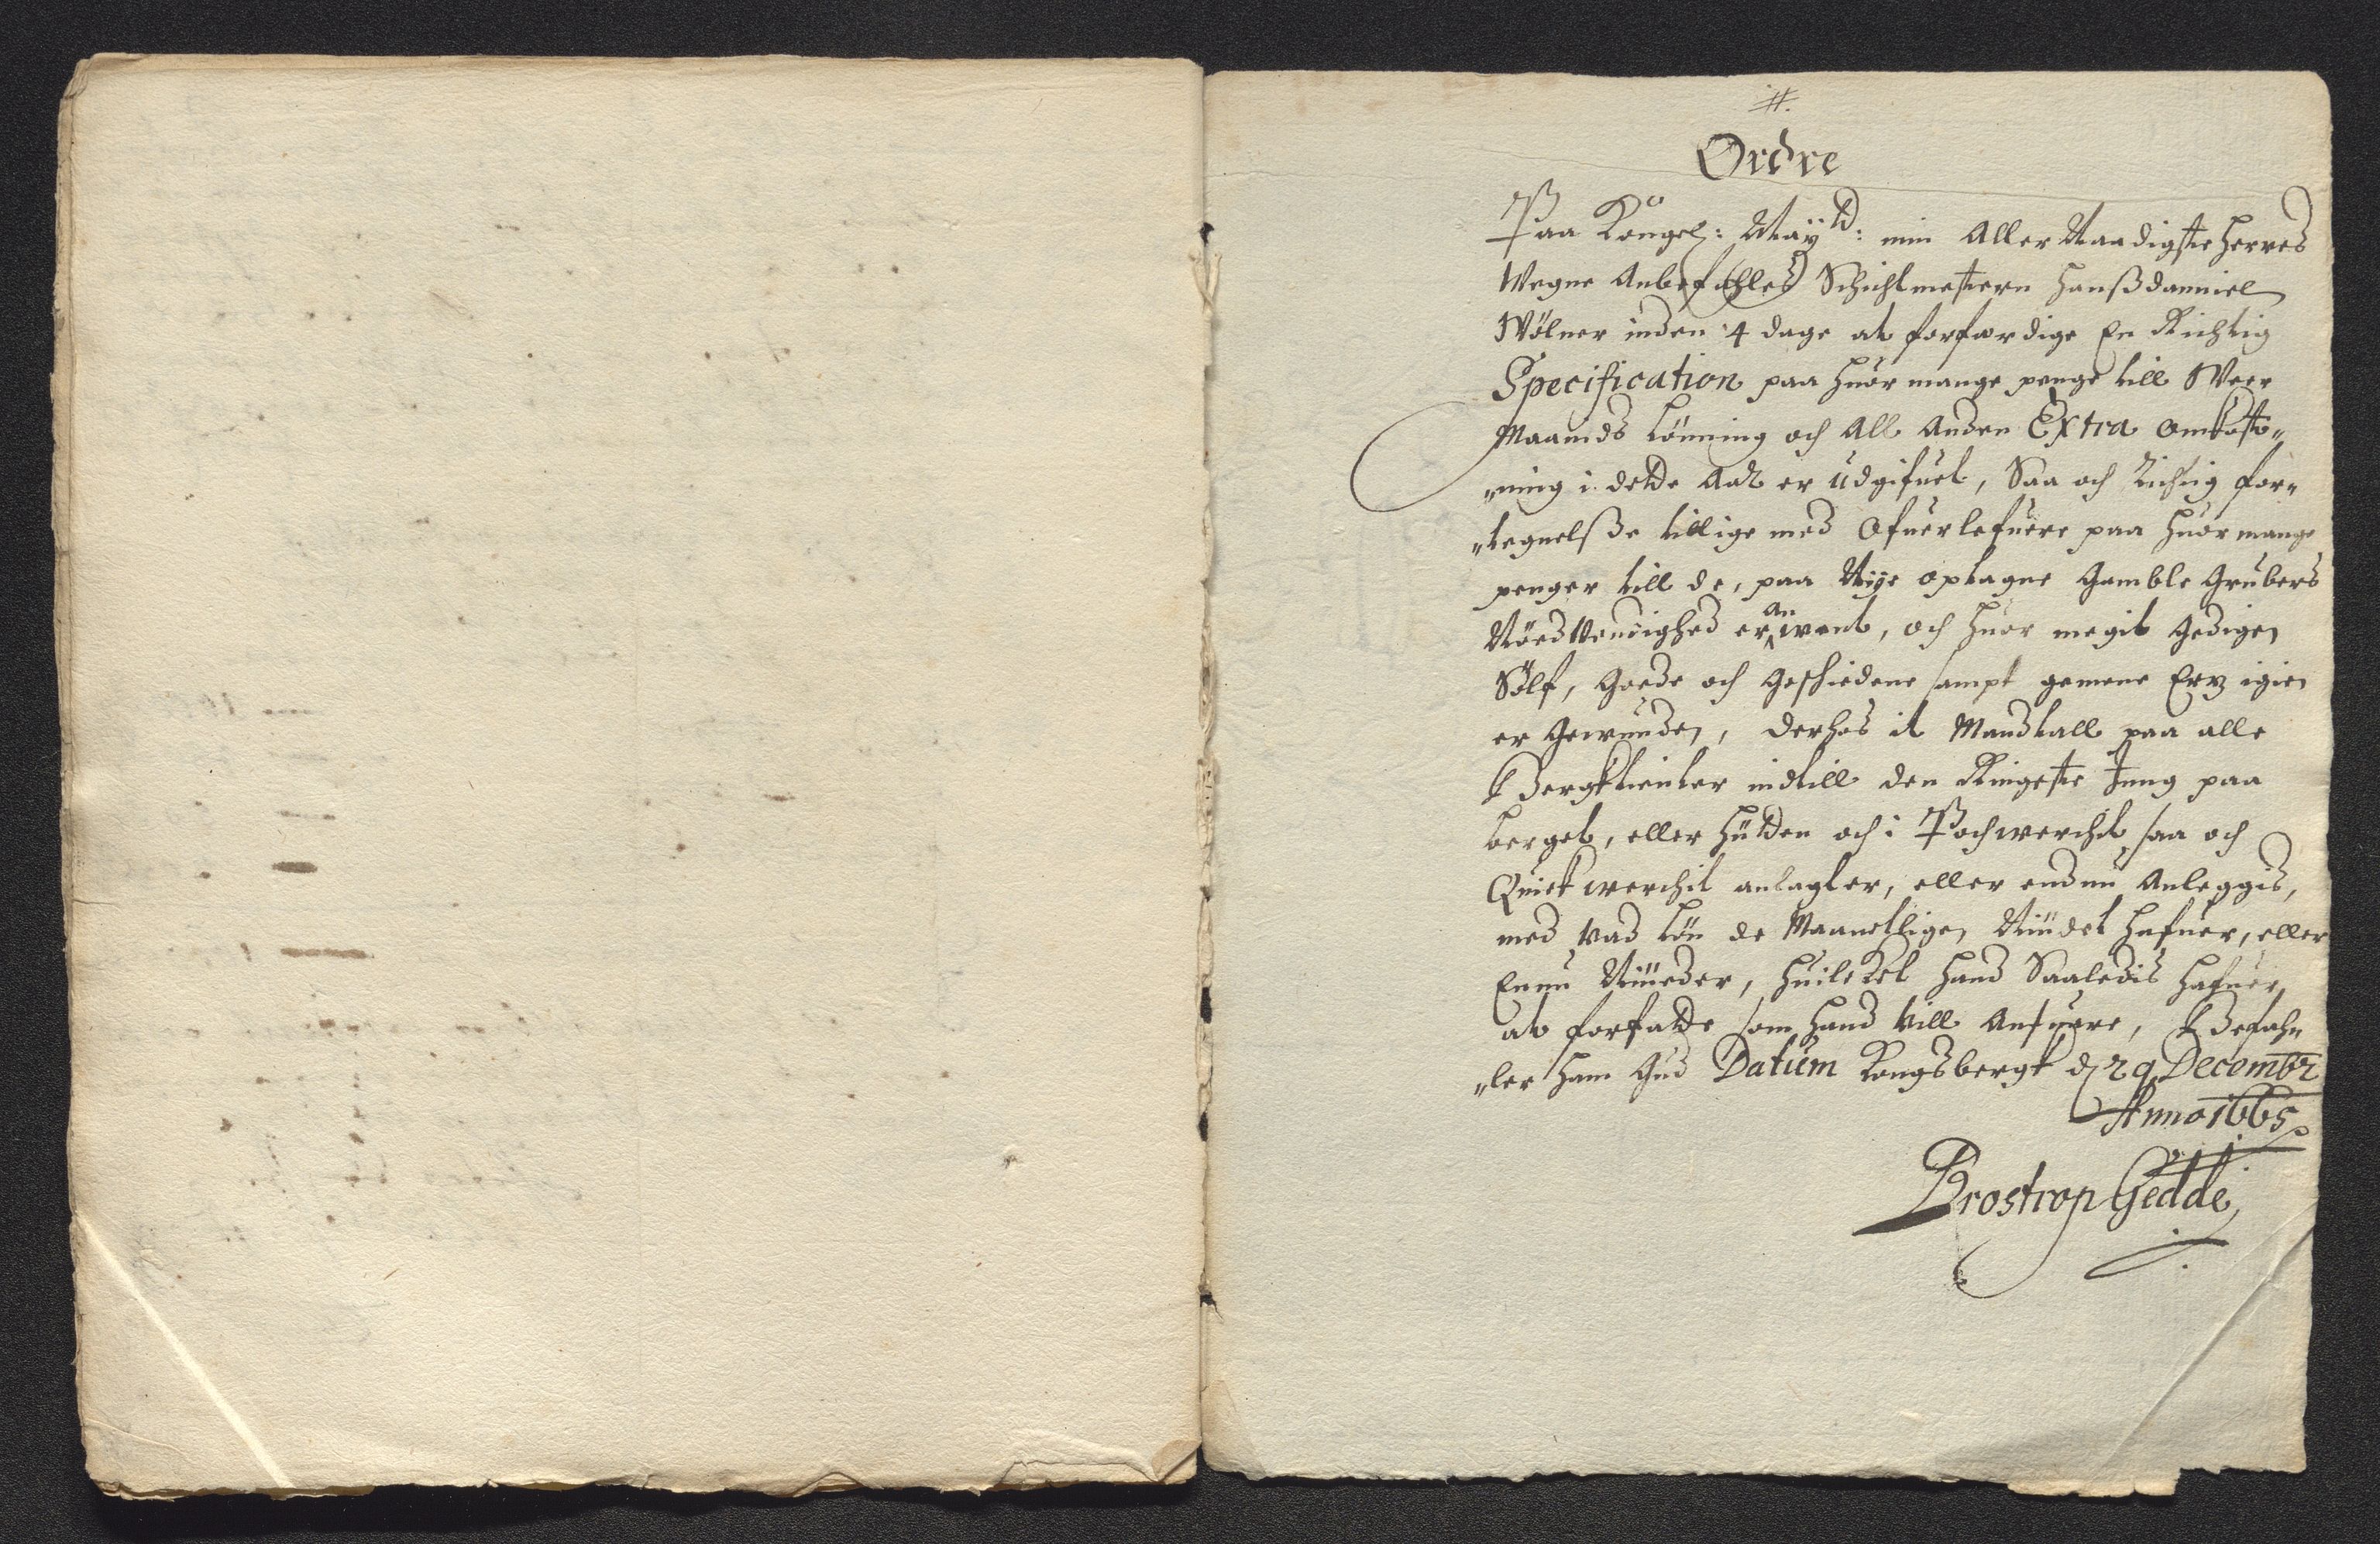 #.
Ordre
Paa Kongel: Mayᵗᵈ: min Aller Naadigste herres
Wegne Anbefahles Schichtmestern Hanß daniel
Wölner inden 4 dage at forferdige En Richtig
Specification paa huor mange penge till Weer
Maanids Lönning och All Anden Extra omkost„
„ning i dette Aar er udgifuet, Saa och Richtig for„
„tegnelße tillige med Ofuerlefuere paa huor mange
penger till de, paa Nÿe optagne Gamble Grubers
Nödwendighed er an went, och huor megit Gedigen
Sölf, Goede och Geschiedene sampt gemene Ertz igien
er Gewunden, derhos it Mandtall paa alle
Bergktienter indtill den Ringeste Jung paa
berget, eller hütten och i Pochwerchit, saa och
Quick werchit anlagt er, eller endnu Anleggis,
med Vad Lön de Maanetligen Nÿdet hafuer, eller
Ennu Nÿeder, huilcket hand Saaledis hafuer
at forfatte som hand till Ansuare, Befah„
„ler ham Gud Datum Kongsbergk d 29 Decembr
Anno 1665
Brostrop Gedde